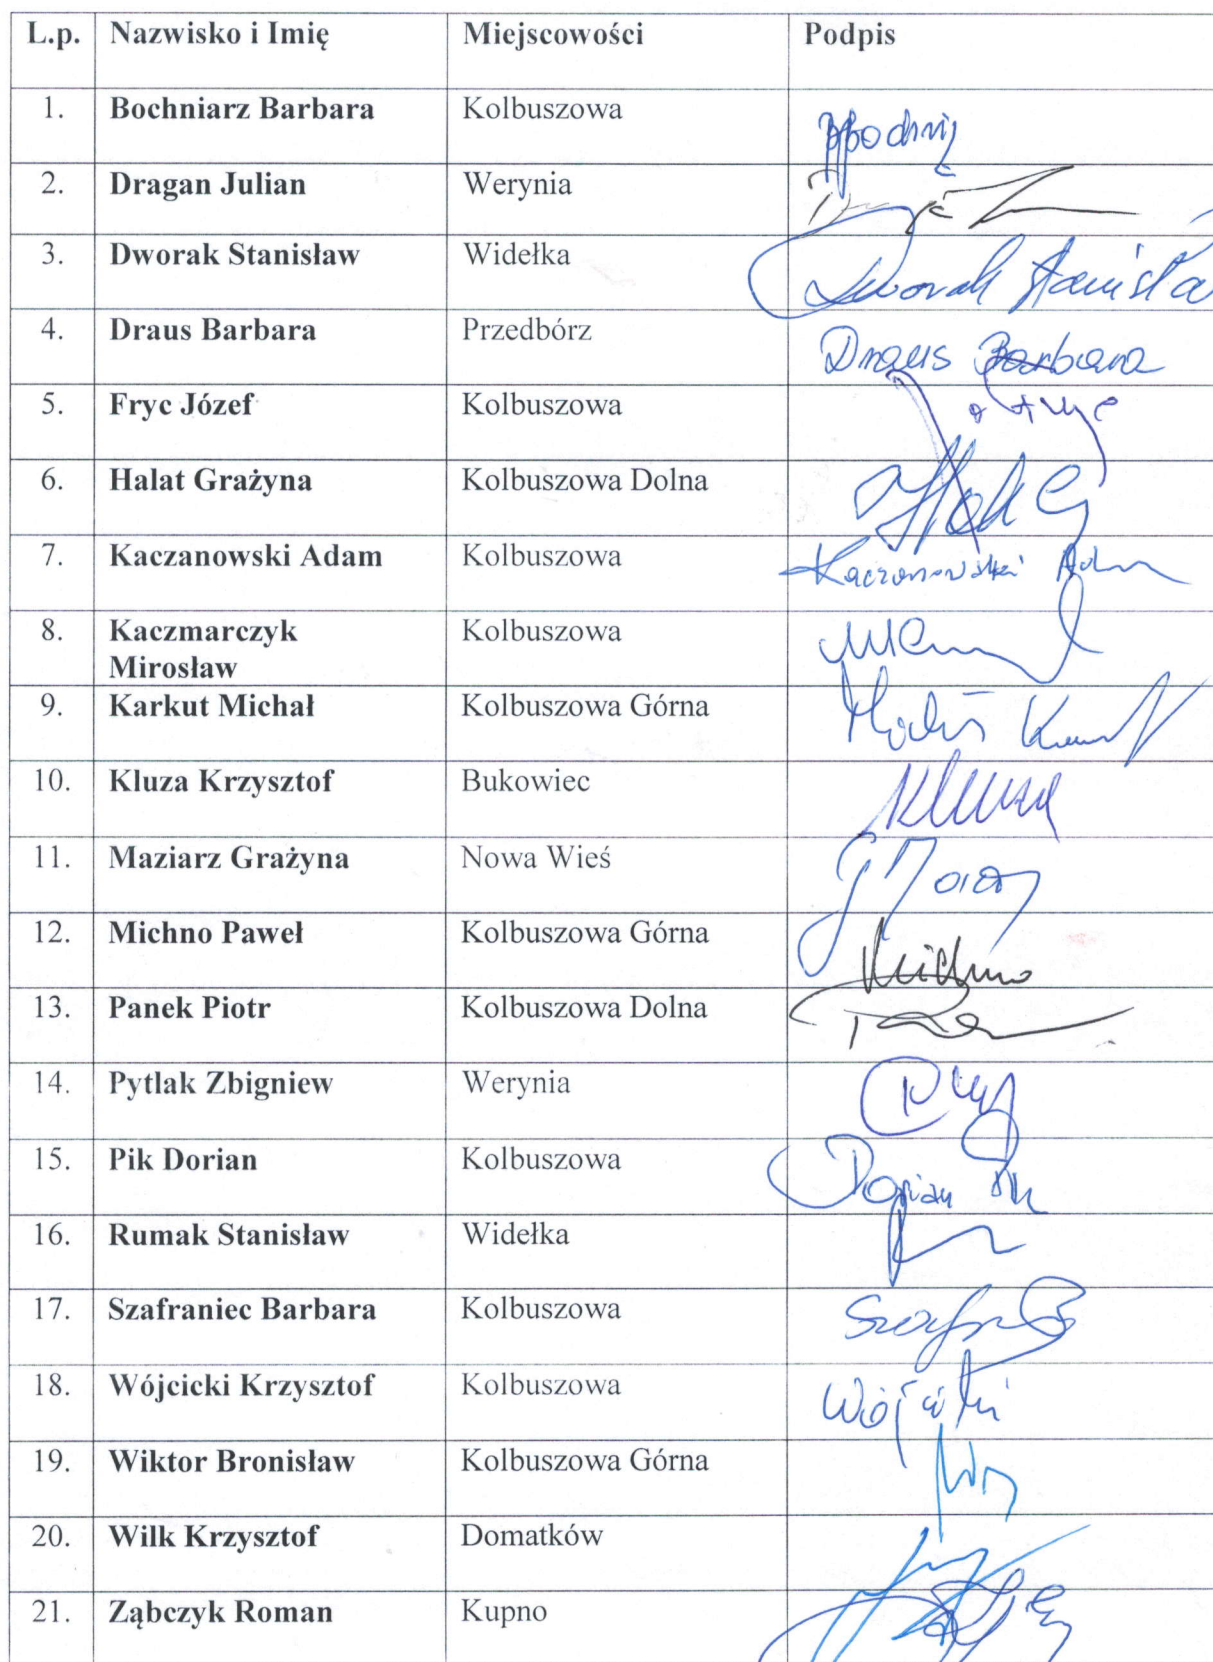 L.p. Nazwisko i Imię Miejscowości Podpis
1. Bochniarz Barbara Kolbuszowa
2. Dragan Julian Werynia
3. Dworak Stanisław Widełka Dworak Stanisła
4. Draus Barbara Przedbórz Draus Barbara
5. Fryc Józef Kolbuszowa
6. Halat Grażyna Kolbuszowa Dolna
7. Kaczanowski Adam Kolbuszowa Kaczanowski Adam
8. Kaczmarczyk Kolbuszowa
Mirosław
9. Karkut Michał Kolbuszowa Górna
10. Kluza Krzysztof Bukowiec Kluza
11. Maziarz Grażyna Nowa Wieś
12. Michno Paweł Kolbuszowa Górna Michno
13. Panek Piotr Kolbuszowa Dolna
14. Pytlak Zbigniew Werynia
15. Pik Dorian Kolbuszowa Dorian Pik
16. Rumak Stanisław Widełka
17. Szafraniec Barbara Kolbuszowa
18. Wójcicki Krzysztof Kolbuszowa Wójcicki
19. Wiktor Bronisław Kolbuszowa Górna
20. Wilk Krzysztof Domatków
21. Ząbczyk Roman Kupno